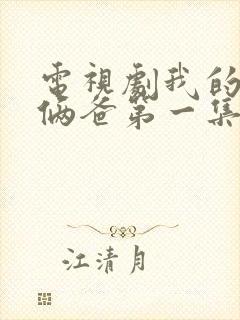 電視劇我的
倆爸第一集
江清月